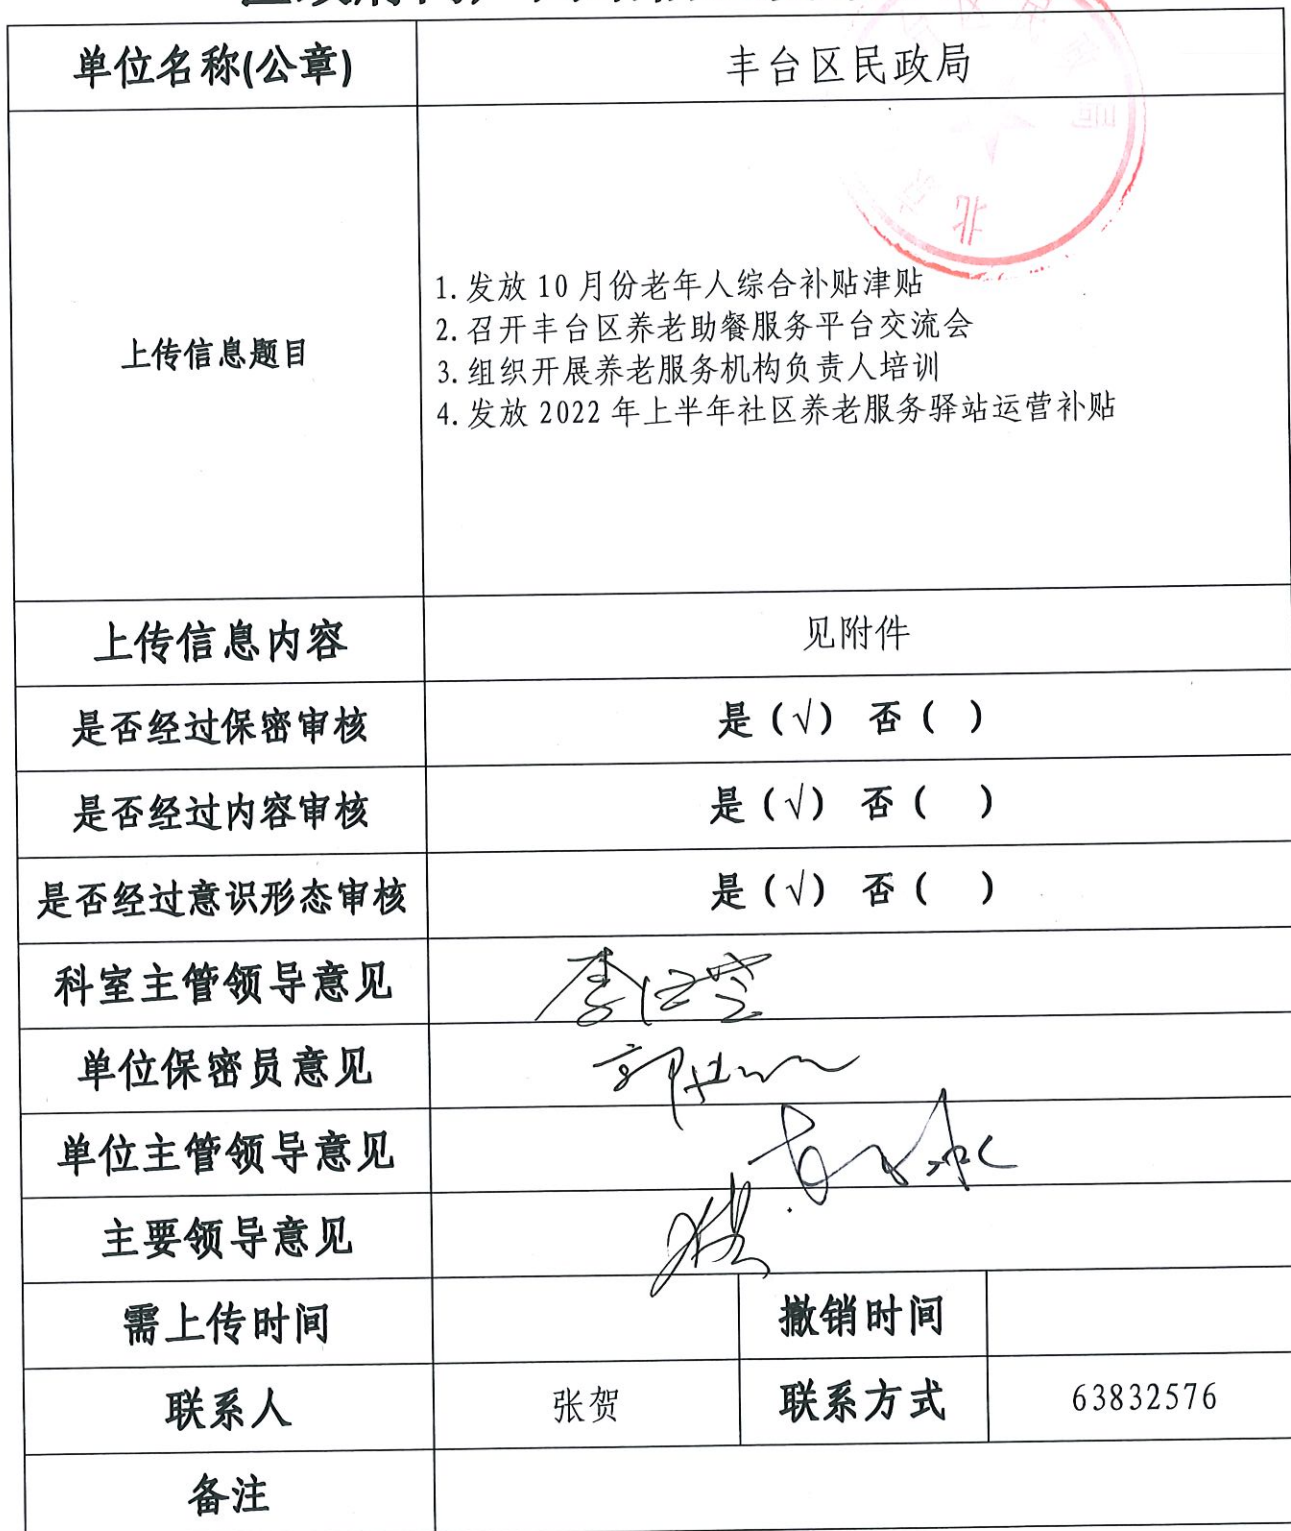 单位名称(公章)
丰台区民政局
上传信息题目
1.发放 10 月份老年人综合补贴津贴
2.召开丰台区养老助餐服务平台交流会
3.组织开展养老服务机构负责人培训
4.发放 2022 年上半年社区养老服务驿站运营补贴
上传信息内容
见附件
是否经过保密审核
是（√） 否（ ）
是否经过内容审核
是（√） 否（ ）
是否经过意识形态审核
是（√） 否（ ）
科室主管领导意见
单位保密员意见
单位主管领导意见
主要领导意见
需上传时间
撤销时间
联系人
张贺
联系方式
63832576
备注